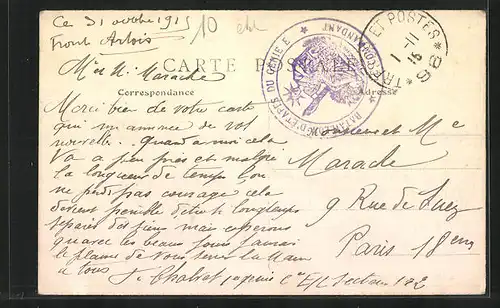 Ce 31 octobre 1915
Front Artois
10
CARTE POSTALE
Correspondance
Adresse
BATAILLON D'ETAPES DU GENIE
COMMANDANT
TRESOR ET POSTES
1-11
15
Mr et M. Marache
Merci bien de votre carte
qui m'annonce de vos
nouvelles. Quand a moi cela
Va a peu près et malgré
la longueur de temps l'on
ne perd pas courage cela
devient penible d'etre si longtemps
separés des siens mais esperons
qu'avec les beaux jours j'aurai
le plaisir de vous serrer la main
a tous
Chabrat
Secteur 182
Monsieur et Me
Marache
9 Rue de Suez
Paris 18em